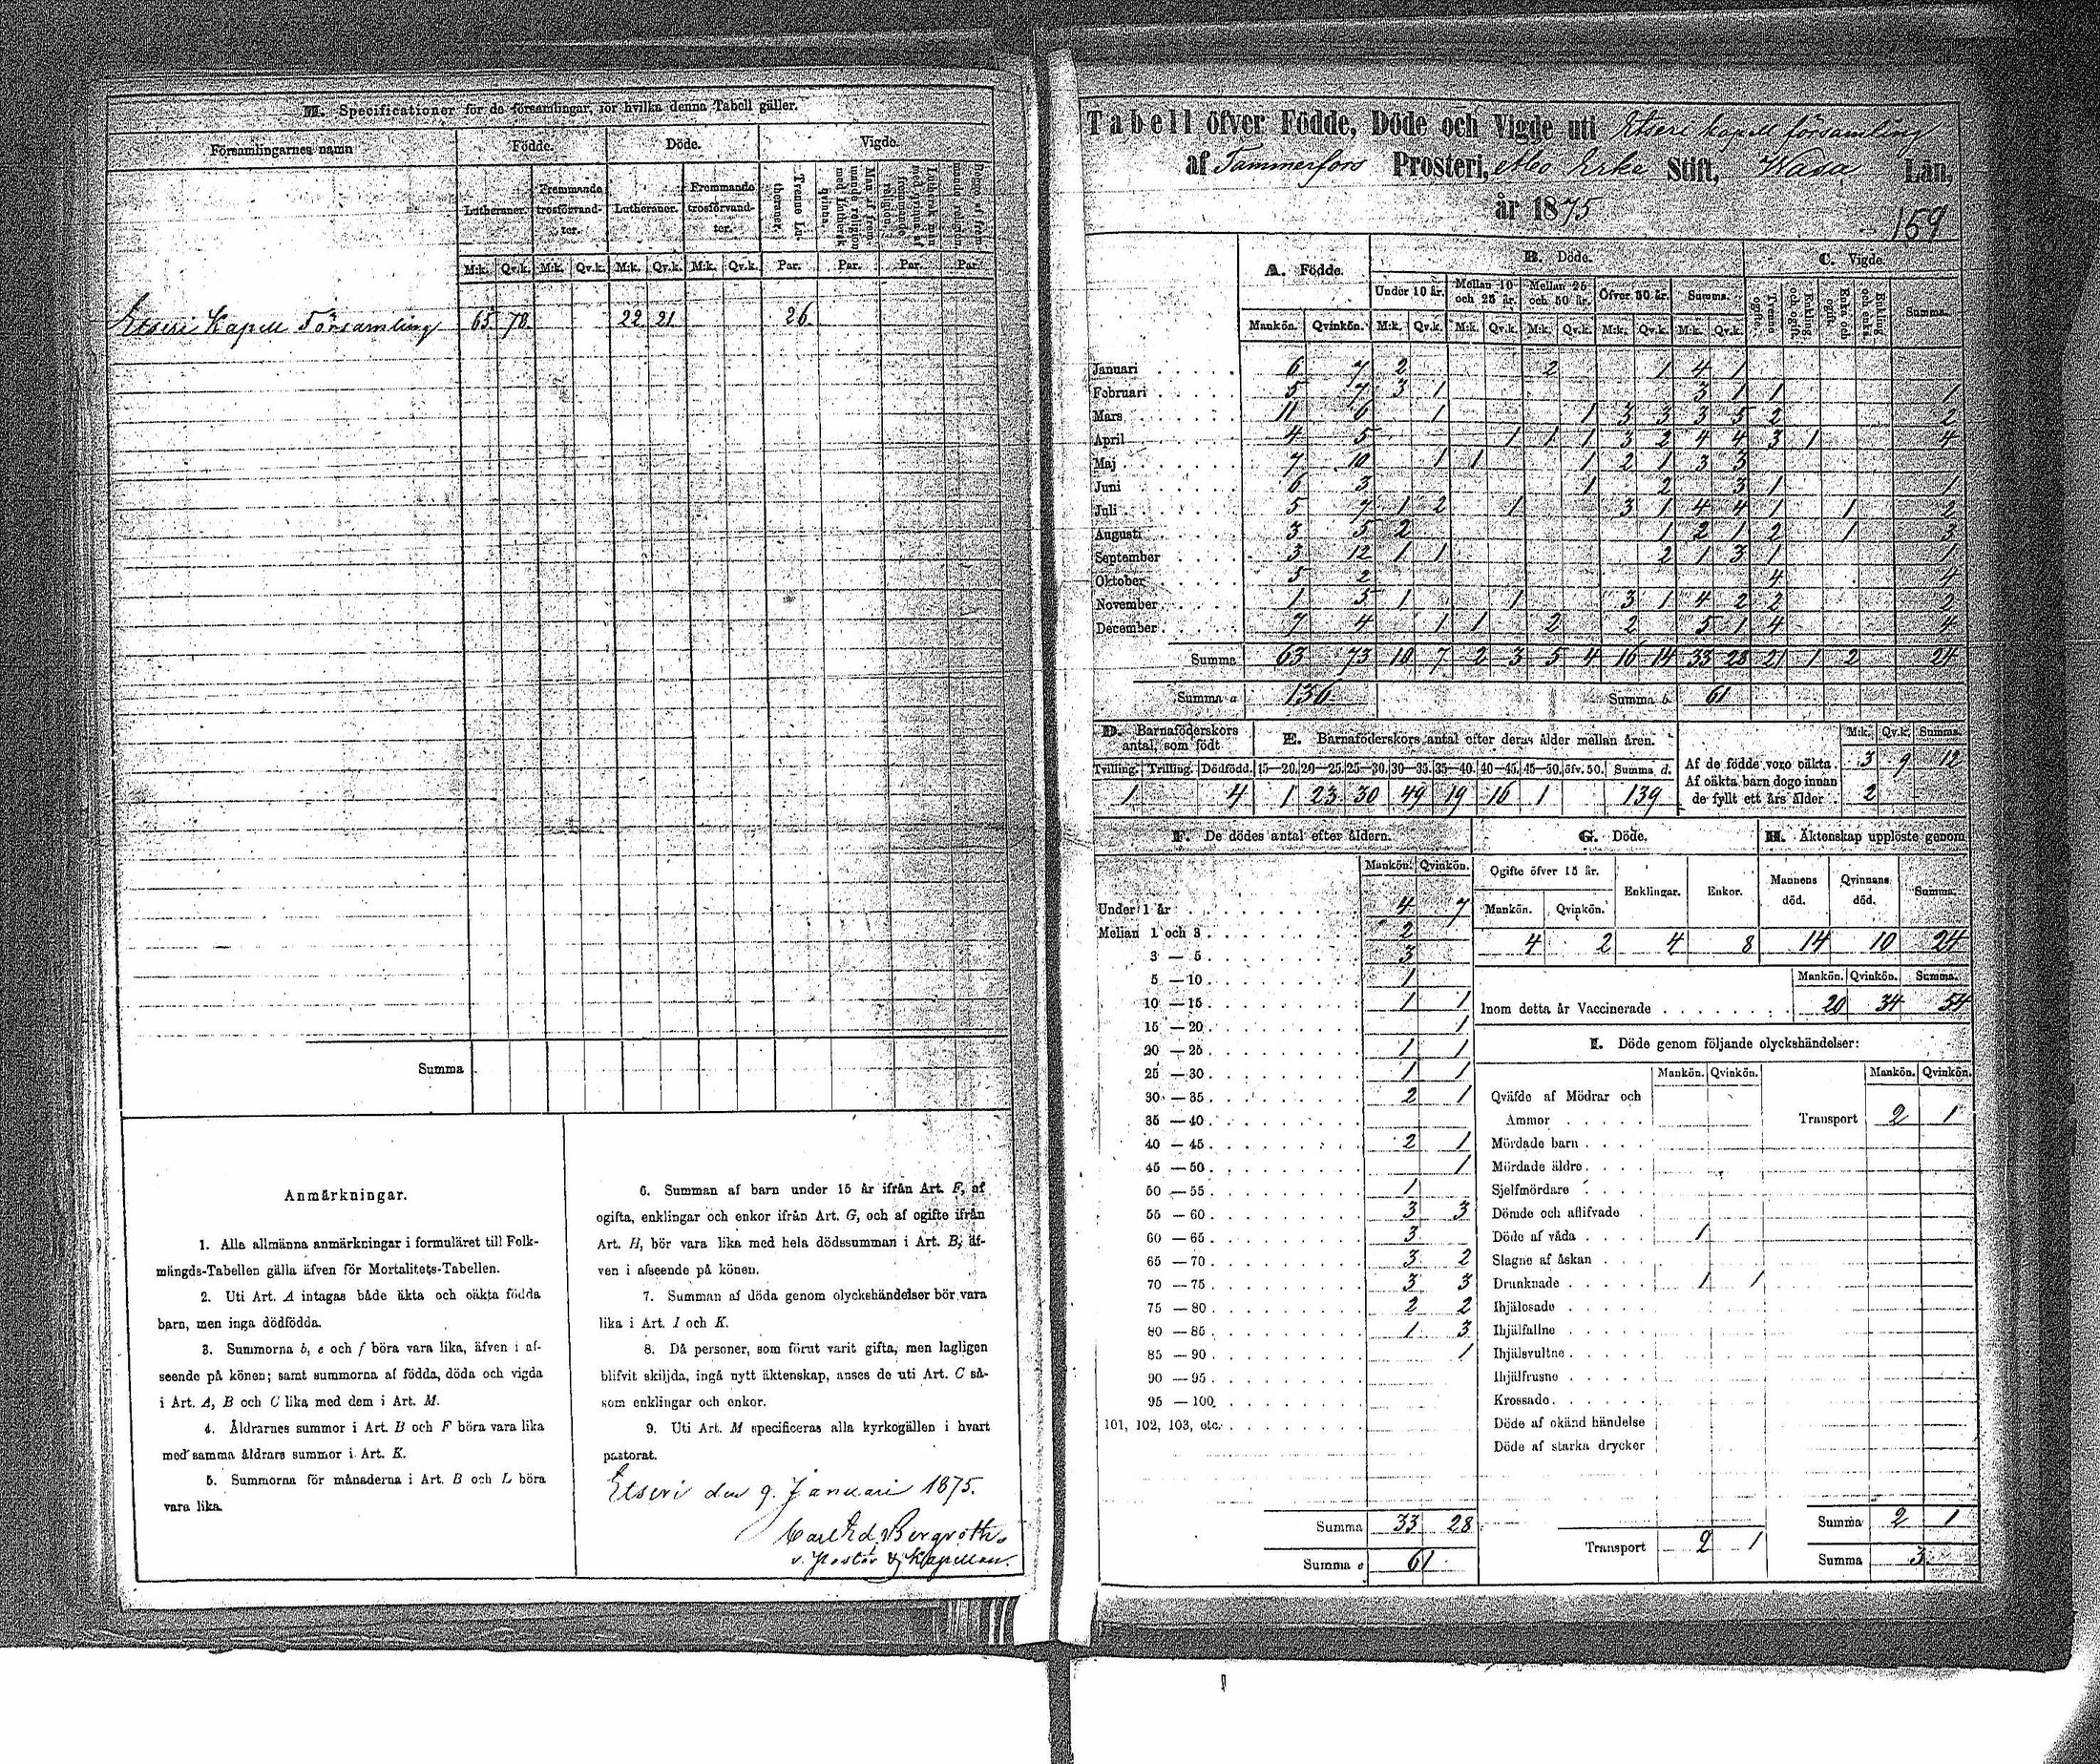 M. Specificationer för de församlingar, för hvilka denna Tabell gäller.
Församlingarnes namn
Födde.
Döde.
Vigde.
Lutheraner.
Fremmande trosförvandter.
Lutheraner.
Fremmande trosförvandter.
Tvenne Lutheraner.
M:k. Qv.k. M:k. Qv.k. M:k. Qv.k. M:k. Qv.k. Par. Par. Par. Par.
Etseri Kapell Församling 65 78 22 21 26
Summa
Anmärkningar.
1. Alla allmänna anmärkningar i formuläret till Folk-
mängds-Tabellen gälla äfven för Mortalitets-Tabellen.
2. Uti Art. A intagas både äkta och oäkta födda
barn, men inga dödfödda.
3. Summorna b, e och f böra vara lika, äfven i af-
seende på könen; samt summorna af födda, döda och vigda
i Art. A, B och C lika med dem i Art. M.
4. Åldrarnes summor i Art. B och F böra vara lika
med samma åldrars summor i Art. K.
5. Summorna för månaderna i Art. B och L böra
vara lika.
6. Summan af barn under 15 år ifrån Art. F, af
ogifta, enklingar och enkor ifrån Art. G, och af ogifte ifrån
Art. H, bör vara lika med hela dödssumman i Art. B, äf-
ven i afseende på könen.
7. Summan af döda genom olyckshändelser bör vara
lika i Art. I och K.
8. Då personer, som förut varit gifta, men lagligen
blifvit skiljda, ingå nytt äktenskap, anses de uti Art. C så-
som enklingar och enkor.
9. Uti Art. M specificeras alla kyrkogällen i hvart
pastorat.
Etseri den 9. Januari 1875.
Carl Ed. Bergroth.
v. Pastor & Kapellan.
Tabell öfver Födde, Döde och Vigde uti Etseri kapell församling
af Tammerfors Prosteri, Åbo Erke Stift, Wasa Län,
år 1875
159
A. Födde.
B. Döde.
C. Vigde.
Under 10 år. Mellan 10 och 25 år. Mellan 25 och 50 år. Öfver 50 år. Summa.
Tvenne ogifte. Enkling och ogift. Enka och ogift. Enkling och enka. Summa.
Mankön. Qvinkön. M:k. Qv.k. M:k. Qv.k. M:k. Qv.k. M:k. Qv.k. M:k. Qv.k.
Januari 6 7 2 2 1 4 1
Februari 5 7 3 1 3 1 1 1
Mars 11 6 1 1 3 3 3 5 2 2
April 4 5 1 1 1 3 2 4 4 3 1 4
Maj 7 10 1 1 1 2 1 3 3
Juni 6 3 1 2 3 1 1
Juli 5 7 1 2 1 3 1 4 4 1 1 2
Augusti 3 5 2 1 2 1 2 1 3
September 3 12 1 1 2 1 3 1 1
Oktober 5 2 4 4
November 1 5 1 1 3 1 4 2 2 2
December 7 4 1 1 2 2 5 1 4 4
Summa 63 73 10 7 2 3 5 4 16 14 33 28 21 1 2 24
Summa a 136 Summa b 61
D. Barnaföderskors antal, som födt
E. Barnaföderskors antal efter deras ålder mellan åren.
Tvilling. Trilling. Dödfödd. 15—20. 20—25. 25—30. 30—35. 35—40. 40—45. 45—50. öfv. 50. Summa d.
1 4 1 23 30 49 19 16 1 139
M:k. Qv.k. Summa.
Af de födde voro oäkta. 3 9 12
Af oäkta barn dogo innan
de fyllt ett års ålder 2
F. De dödes antal efter åldern.
Mankön. Qvinkön.
Under 1 år 4 7
Mellan 1 och 3 2
3 — 5 3
5 — 10 1
10 — 15 1 1
15 — 20 1
20 — 25 1 1
25 — 30 1 1
30 — 35 2 1
35 — 40
40 — 45 2 1
45 — 50 1
50 — 55 1
55 — 60 3 3
60 — 65 3
65 — 70 3 2
70 — 75 3 3
75 — 80 2 2
80 — 85 1 3
85 — 90 1
90 — 95
95 — 100
101, 102, 103, etc.
Summa 33 28
Summa e 61
G. Döde.
Ogifte öfver 15 år. Enklingar. Enkor.
Mankön. Qvinkön.
4 2 4 8
H. Äktenskap upplöste genom
Mannens död. Qvinnans död. Summa.
14 10 24
Mankön. Qvinkön. Summa.
Inom detta år Vaccinerade 20 34 54
I. Döde genom följande olyckshändelser:
Mankön. Qvinkön.
Qväfde af Mödrar och
Ammor
Mördade barn
Mördade äldre
Sjelfmördare
Dömde och aflifvade
Döde af våda 1
Slagne af åskan
Drunknade 1 1
Ihjälosade
Ihjälfallne
Ihjälsvultne
Ihjälfrusne
Krossade
Döde af okänd händelse
Döde af starka drycker
Transport 2 1
Mankön. Qvinkön.
Transport 2 1
Summa 2 1
Summa 3